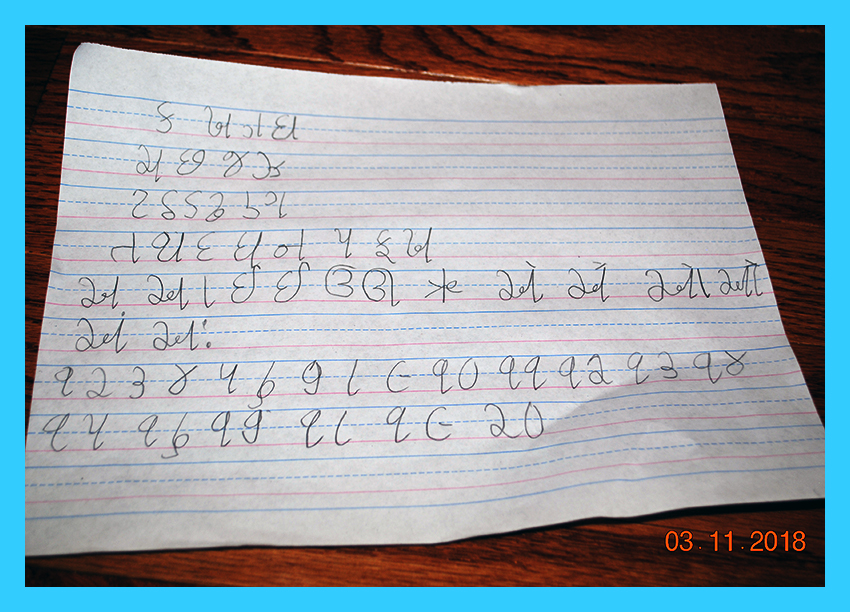 ક ખ ગ ઘ
ચ છ જ ઝ
ટ ઠ ડ ઢ ડ ણ
ત થ દ ધ ન પ ફ ખ
અ આ ઇ ઈ ઉ ઊ એ ઐ ઓ ઔ
અં અઃ
૧ ૨ ૩ ૪ ૫ ૬ ૭ ૮ ૯ ૧૦ ૧૧ ૧૨ ૧૩ ૧૪
૧૫ ૧૬ ૧૭ ૧૮ ૧૯ ૨૦
03.11.2018